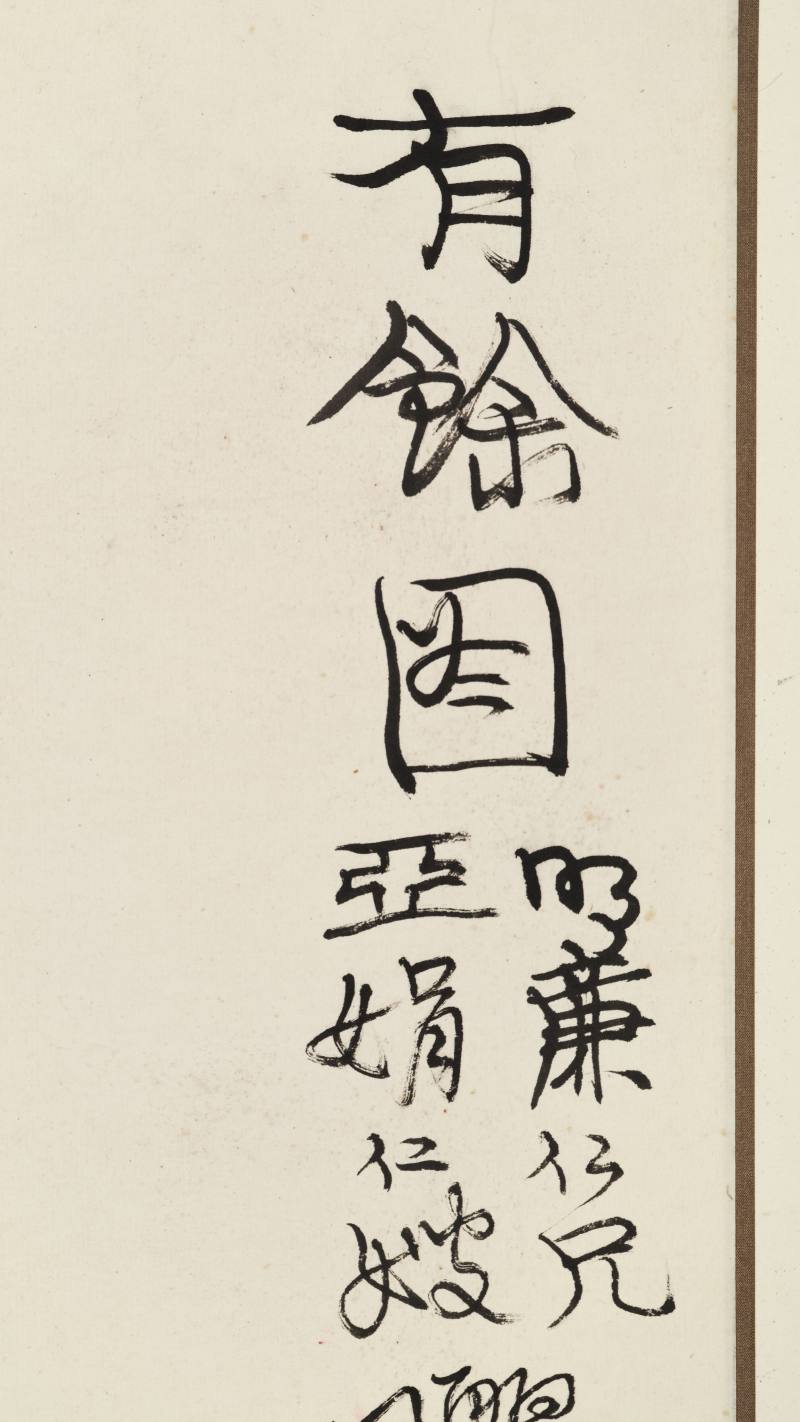 有餘图
明廉仁兄
亞娟仁嫂